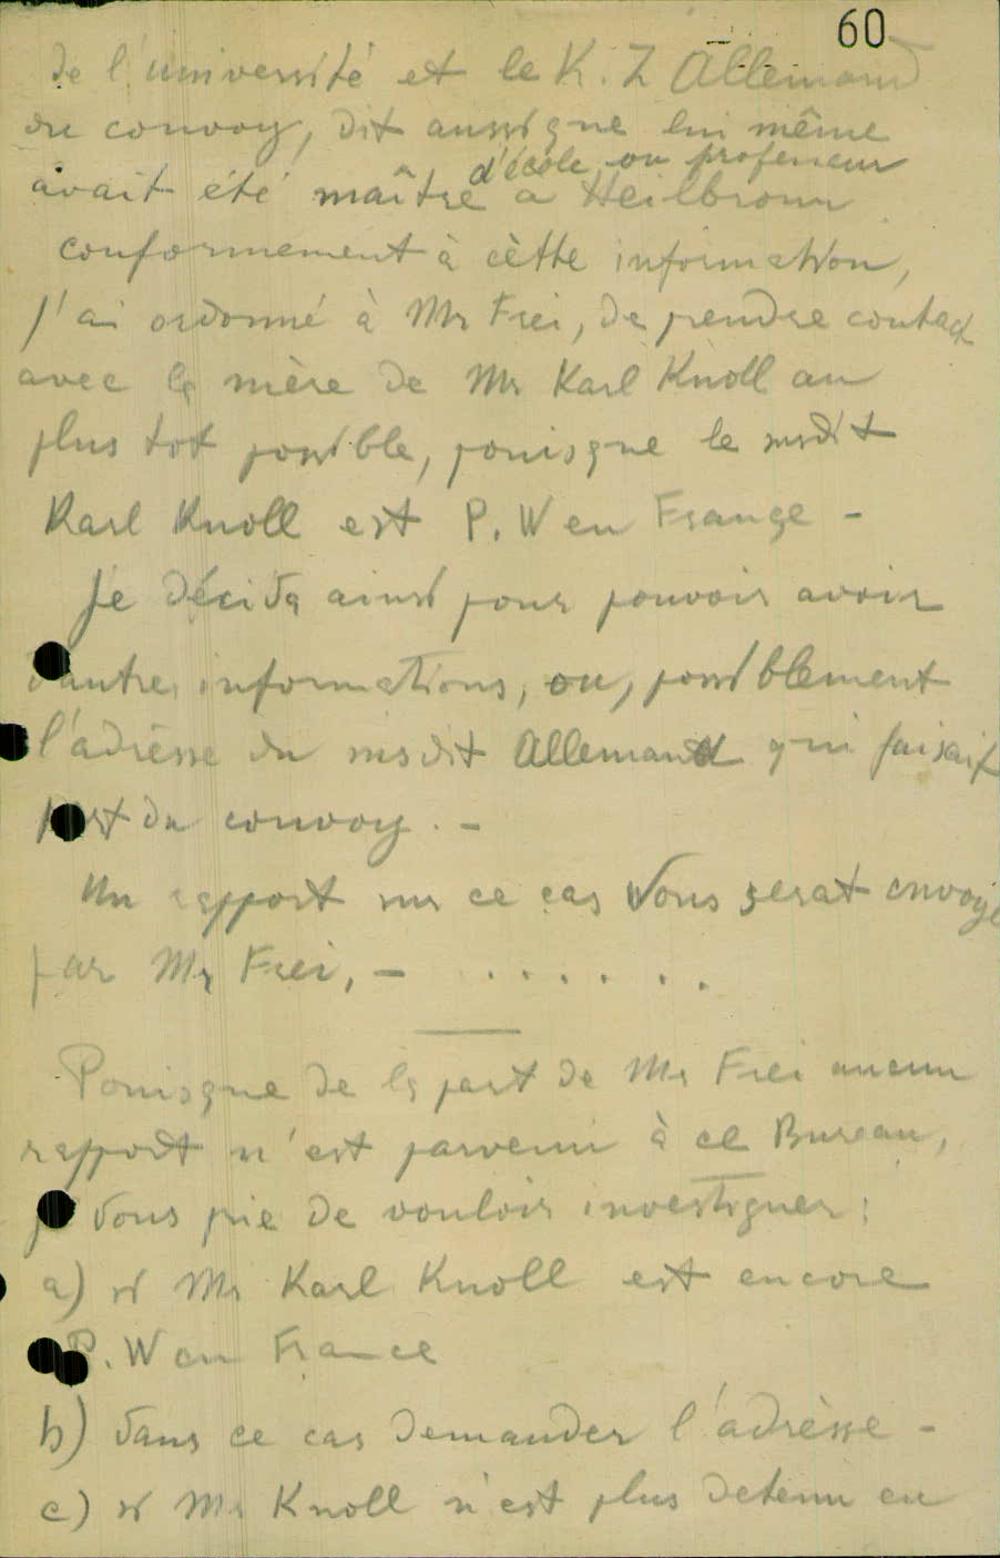 60
de l'université et le K. Z Allemand
du convoy, dit aussi que lui même
d'école ou professeur
avait été maître a Heilbronn
conformement à cètte information,
j'ai ordonné à Mr Frei, de prendre contact
avec la mère de Mr Karl Knoll au
plus tot possible, pouisque le susdit
Karl Knoll est P. W en France -
Je décida ainsi pour pouvoir avoir
d'autre informations, ou, possiblement
l'adrèsse du susdit Allemand qui faisait
part du convoy. -
Un rapport sur ce cas Vous serat envoyé
par Mr Frei, - . . . . . .
Pouisque de la part de Mr Frei aucun
rapport n'est parvenu à ce Bureau,
je Vous prie de vouloir investiguer :
a) si Mr Karl Knoll est encore
P. W en France
b) dans ce cas demander l'adrèsse -
c) si Mr Knoll n'est plus detenu en